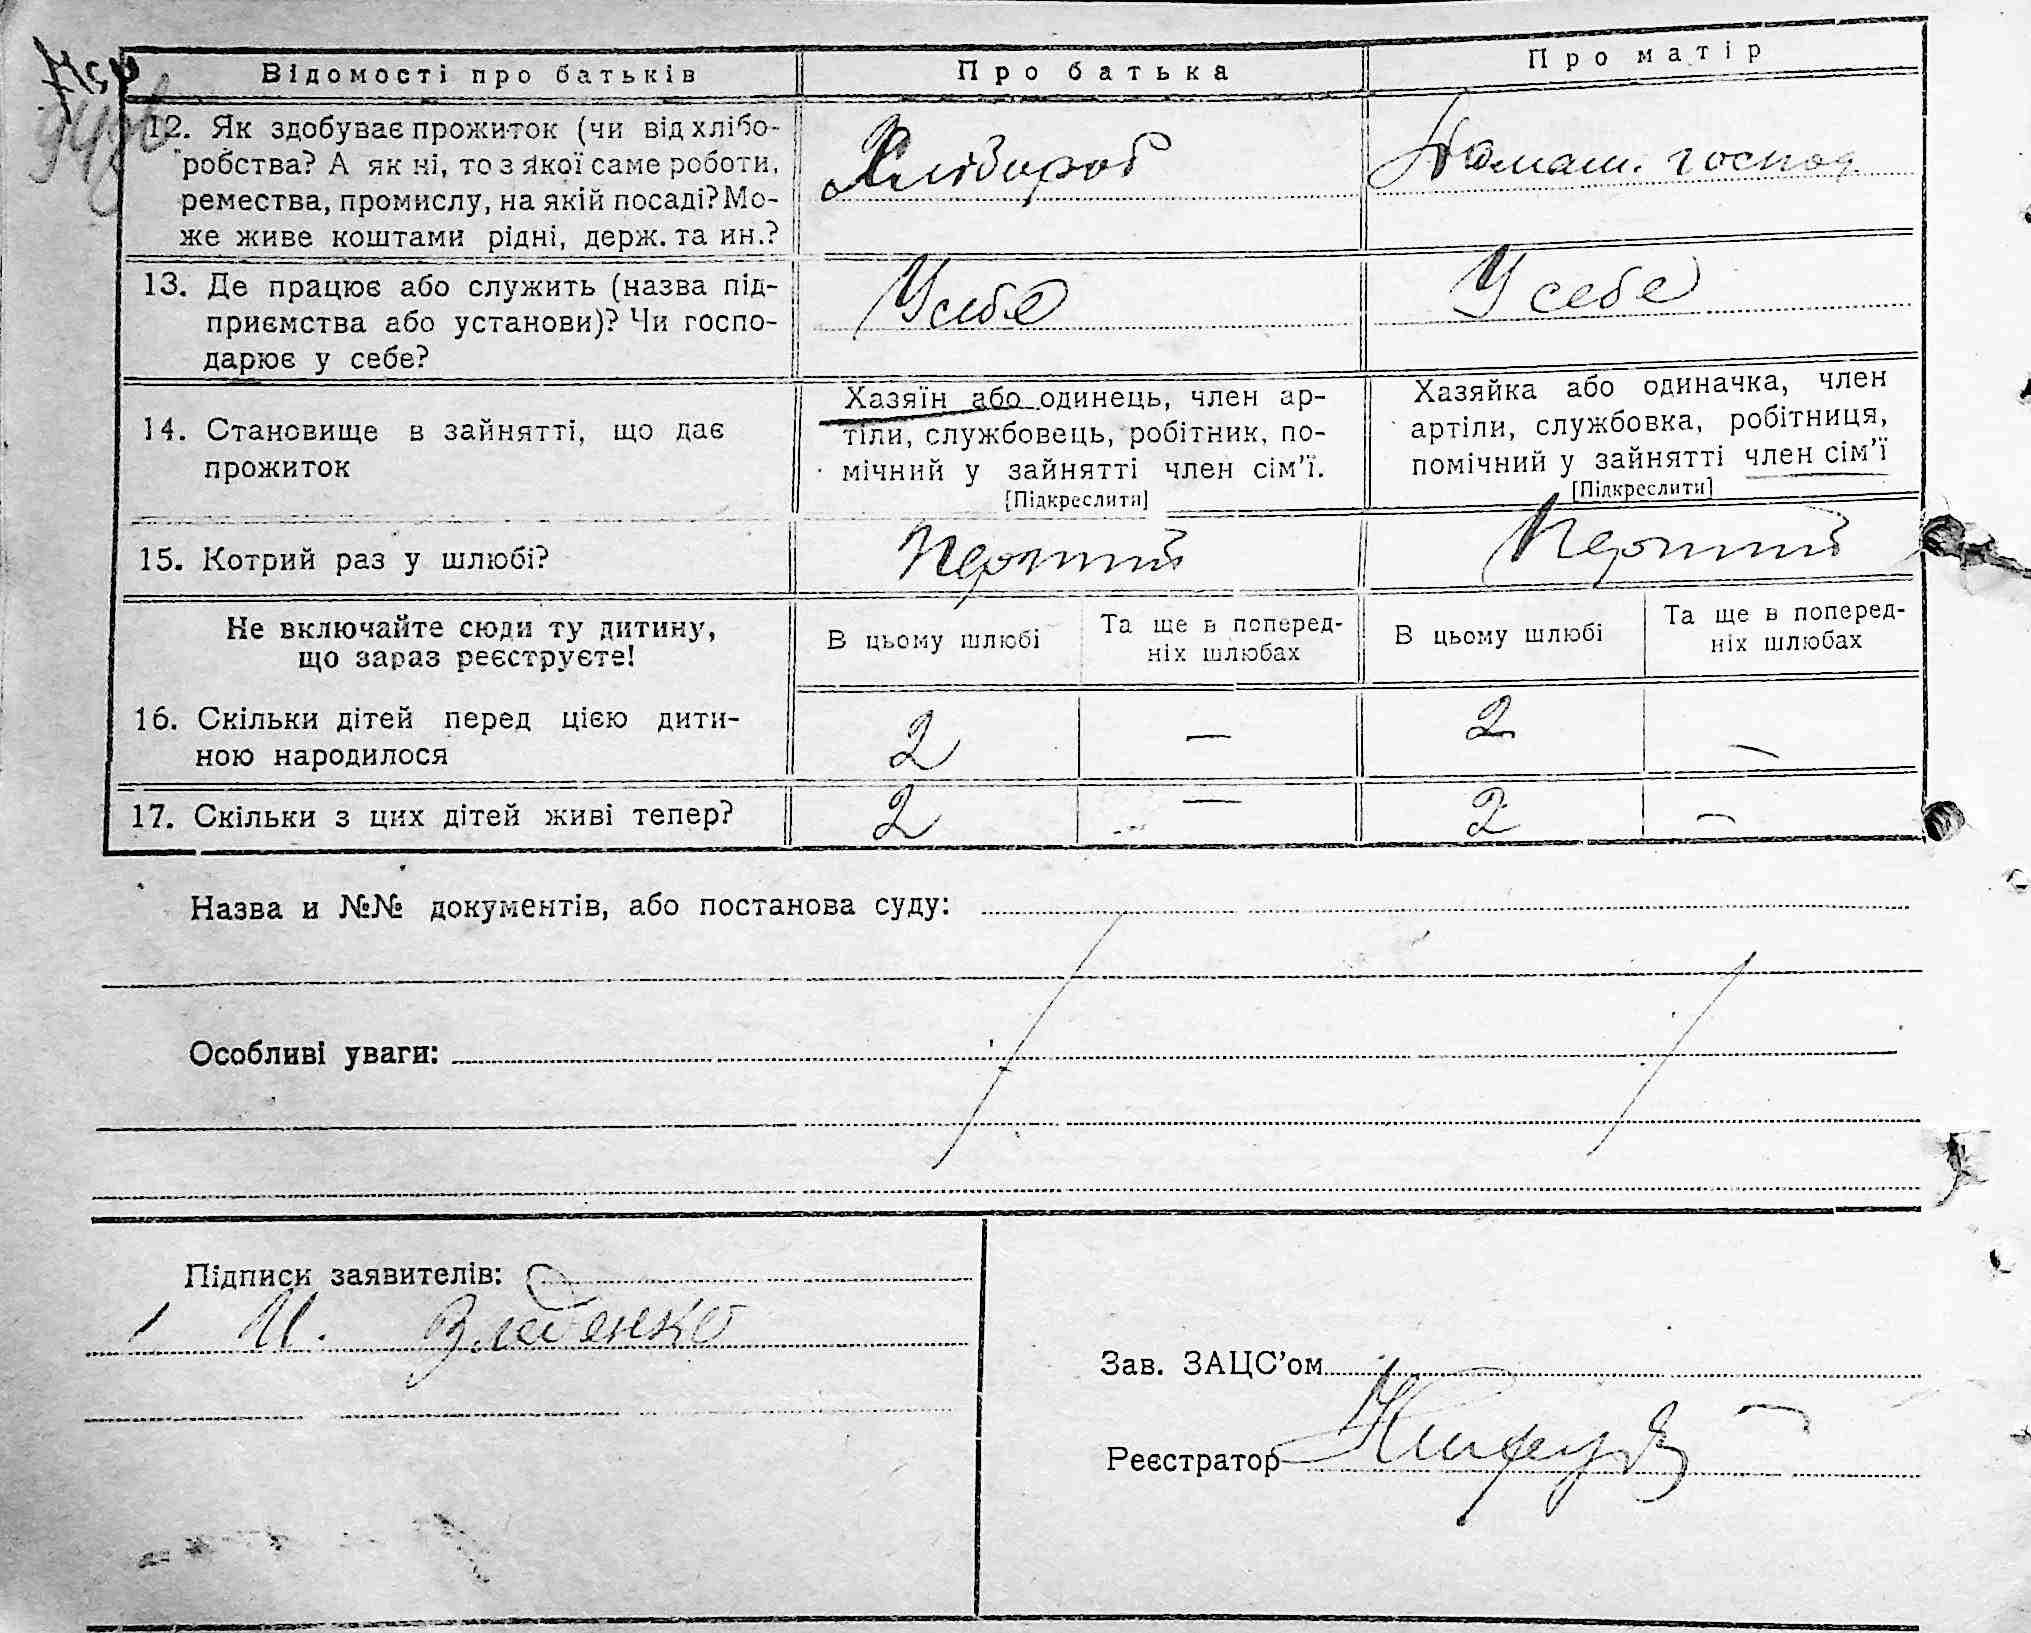 Відомості про батьків Про батька Про матір
12. Як здобуває прожиток (чи від хлібо-
робства? А як ні, то з якої саме роботи,
ремества, промислу, на якій посаді? Мо-
же живе коштами рідні, держ. та ин.?
Хлібороб
Домаш. господ.
13. Де працює або служить (назва під-
приємства або установи)? Чи госпо-
дарює у себе?
У себе
У себе
14. Становище в зайнятті, що дає
прожиток
Хазяїн або одинець, член ар-
тіли, службовець, робітник, по-
мічний у зайнятті член сім'ї.
[Підкреслити]
Хазяйка або одиначка, член
артіли, службовка, робітниця,
помічний у зайнятті член сім'ї
[Підкреслити]
15. Котрий раз у шлюбі?
Перший
Перший
Не включайте сюди ту дитину,
що зараз реєструєте!
В цьому шлюбі
Та ще в поперед-
ніх шлюбах
В цьому шлюбі
Та ще в поперед-
ніх шлюбах
16. Скільки дітей перед цією дити-
ною народилося
2 — 2 —
17. Скільки з цих дітей живі тепер?
2 — 2 —
Назва и №№ документів, або постанова суду:
Особливі уваги:
Підписи заявителів:
И.
Зав. ЗАЦС'ом
Реєстратор